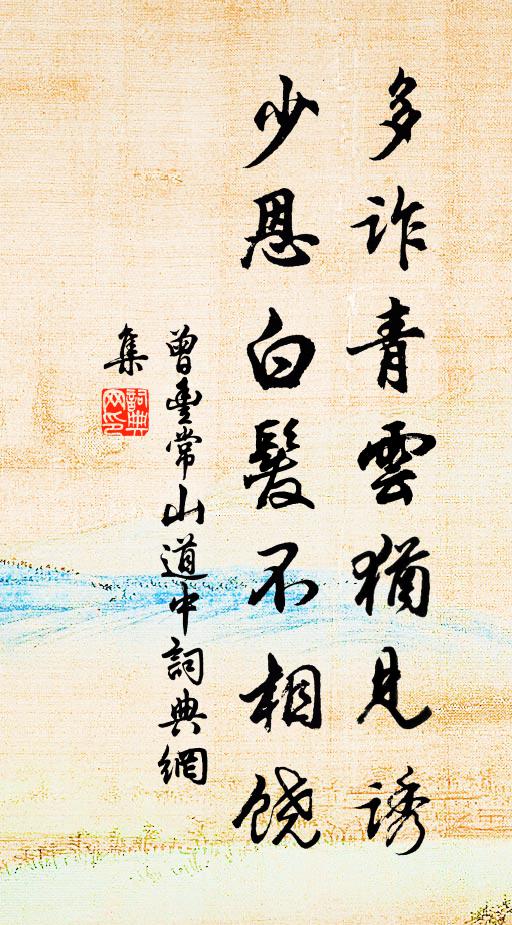 多詐青雲猶見誘
少恩白髮不相饒
曾豐常山道中詞典網
集
詞典網印